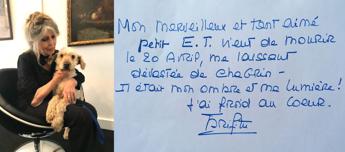 Mon merveilleux et tant aimé
petit E.T. vient de mourir
le 20 AVRIL, me laissant
dévastée de chagrin -
Il était mon ombre et ma lumière !
J'ai froid au coeur.